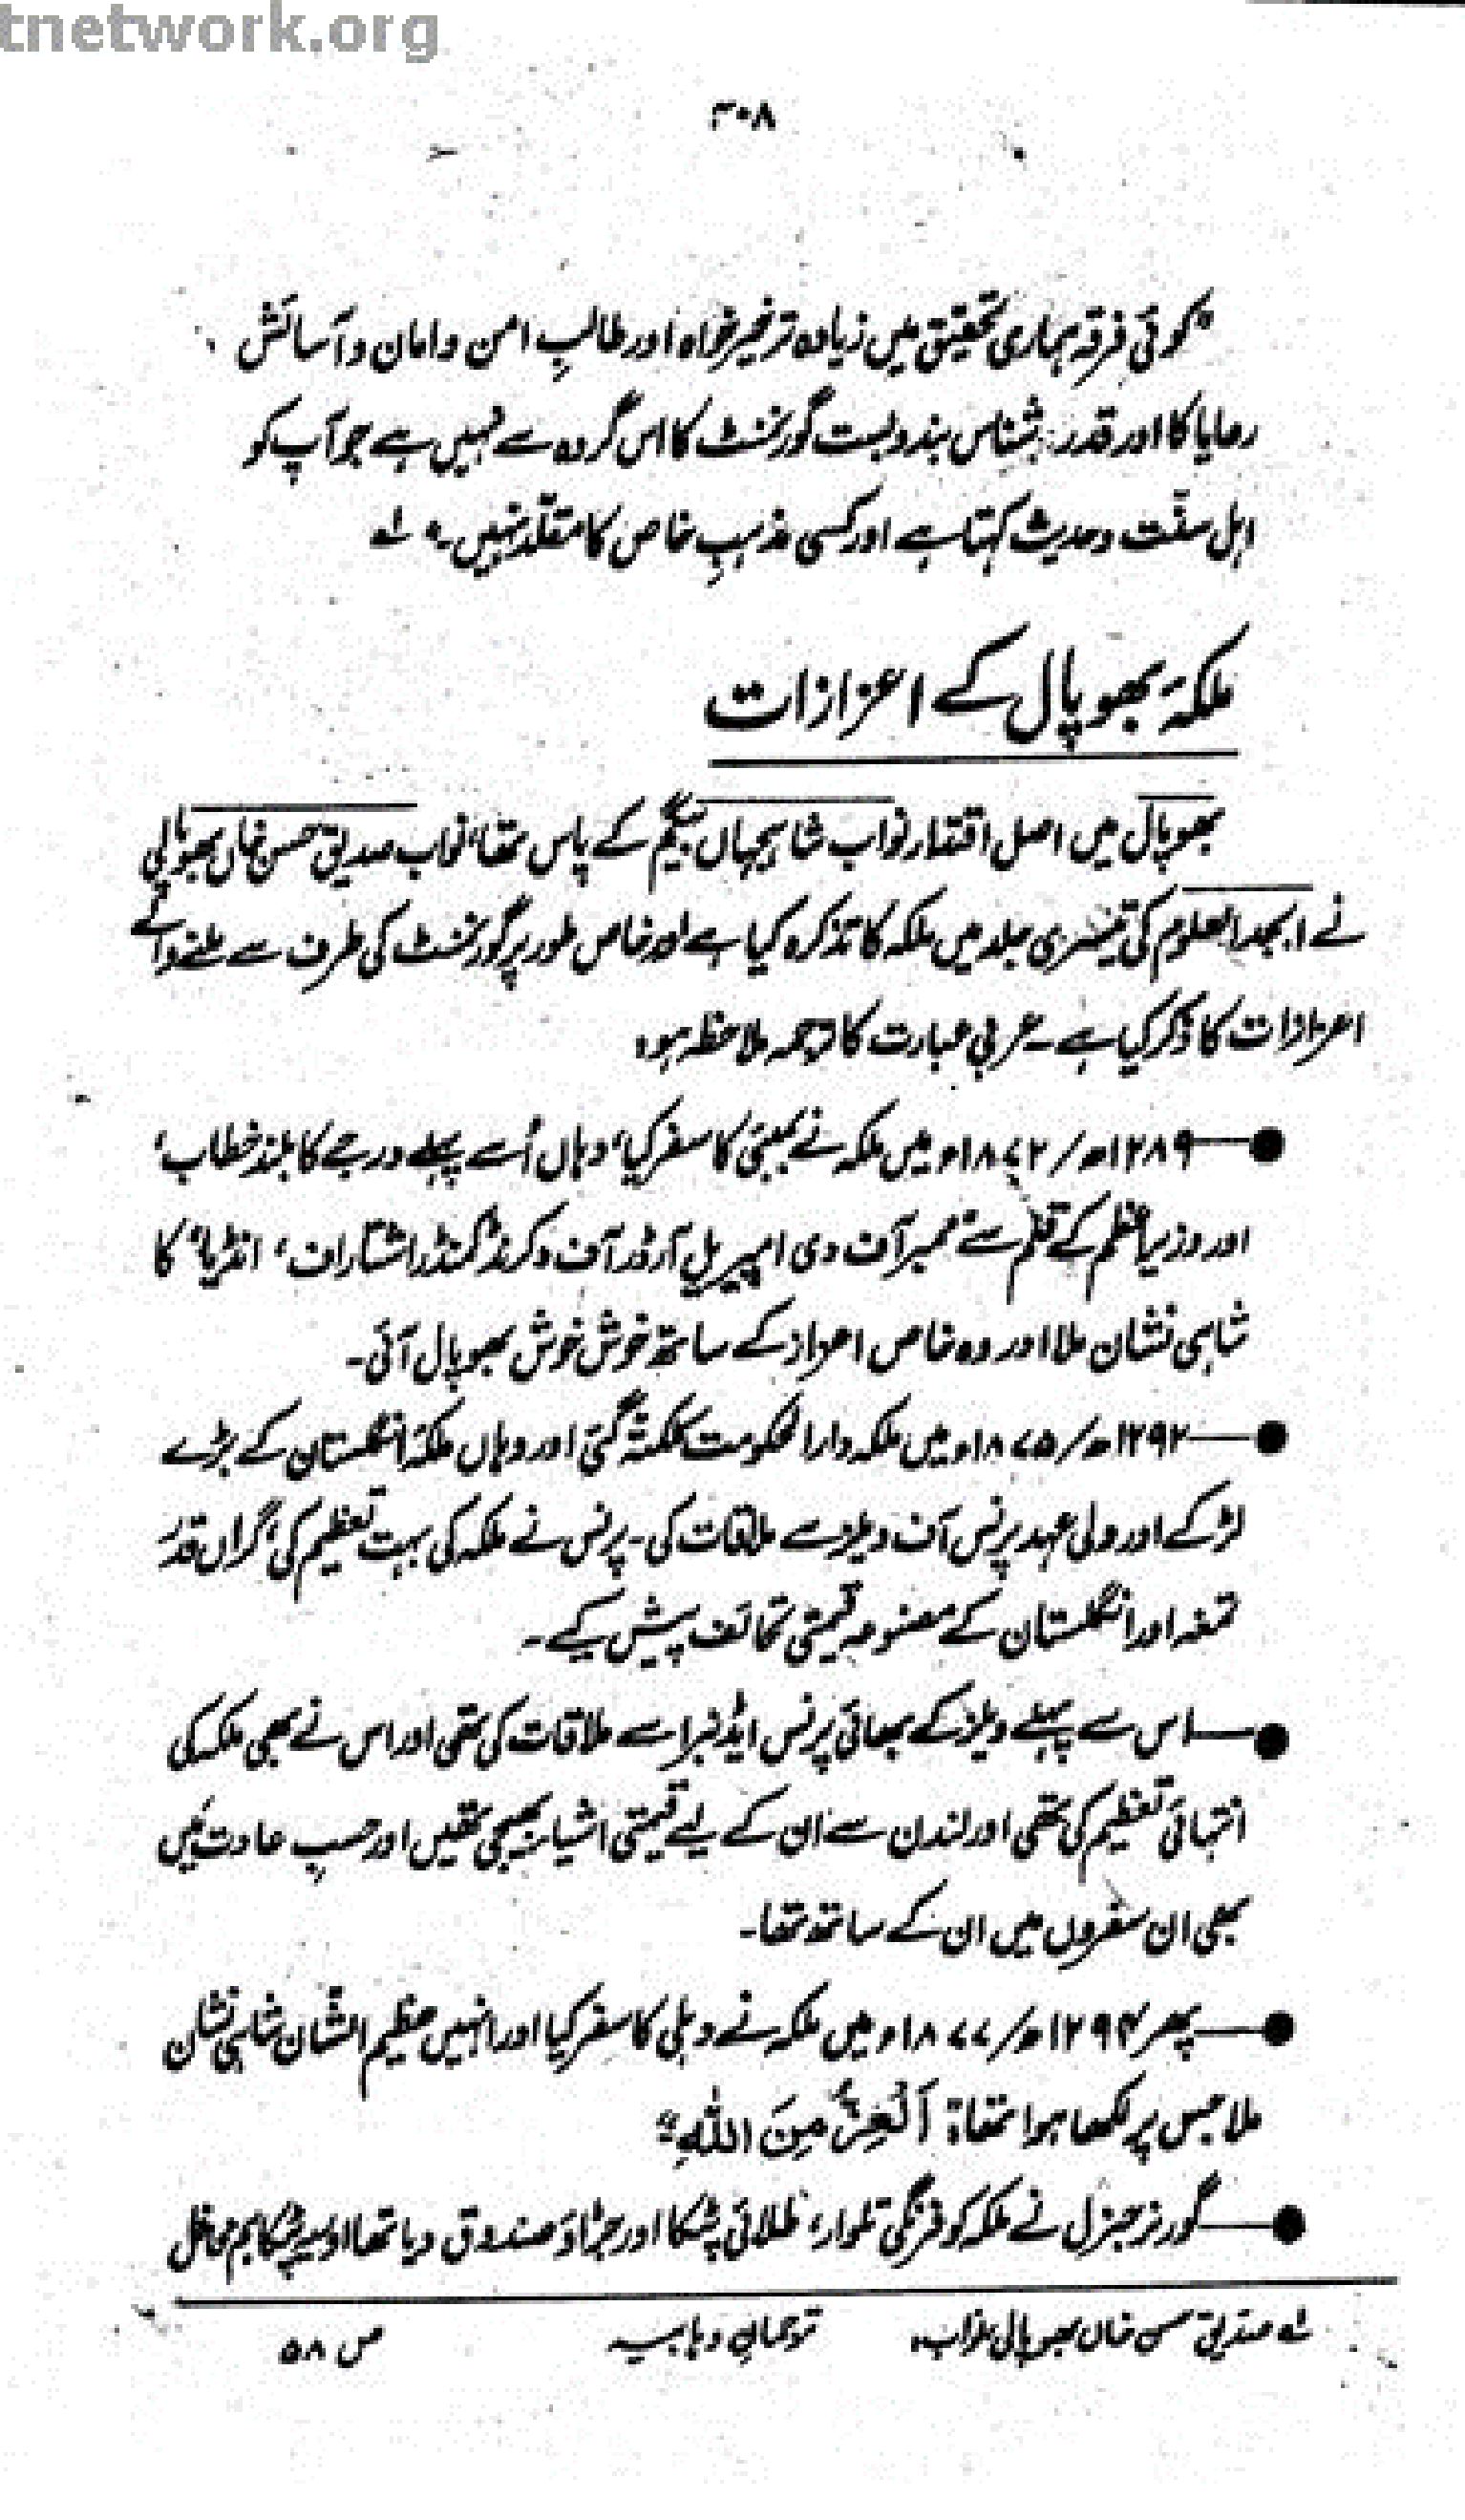 tnetwork.org
۳۰۸
"کوئی فرقہ ہماری تحقیق میں زیادہ تر خیر خواہ اور طالبِ امن و امان و آسائش
رعایا کا اور قدر شناس بندوبست گورنمنٹ کا اس گروہ سے نہیں ہے جو آپ کو
اہل سنّت و حدیث کہتا ہے اور کسی مذہبِ خاص کا مقلّد نہیں۔" لہ
ملکۂ بھوپال کے اعزازات
بھوپال میں اصل اقتدار نواب شاہجہاں بیگم کے پاس تھا، نواب صدیق حسن خاں بھوپالی
نے ابجد العلوم کی تیسری جلد میں ملکہ کا تذکرہ کیا ہے اور خاص طور پر گورنمنٹ کی طرف سے ملنے والے
اعزازات کا ذکر کیا ہے۔ عربی عبارت کا ترجمہ ملاحظہ ہو:
●—۱۲۸۹ھ/۱۸۷۲ء میں ملکہ نے بمبئی کا سفر کیا، وہاں اُسے پہلے درجے کا بلند خطاب،
اور وزیر اعظم کے قلم سے ممبر آف دی امپیریل آرڈر آف دکرنڈ کمنڈر اسٹار اف، انڈیا، کا
شاہی نشان ملا اور وہ خاص اعزاز کے ساتھ خوش خوش بھوپال آئی۔
●—۱۲۹۲ھ/۱۸۷۵ء میں ملکہ دارالحکومت کلکتہ گئی اور وہاں ملکۂ انگلستان کے بڑے
لڑکے اور ولی عہد پرنس آف ویلز سے ملاقات کی۔ پرنس نے ملکہ کی بہت تعظیم کی، گراں قدر
تمغہ اور انگلستان کے مصنوعہ قیمتی تحائف پیش کیے۔
●—اس سے پہلے ویلز کے بھائی پرنس ایڈنبرا سے ملاقات کی تھی اور اس نے بھی ملکہ کی
انتہائی تعظیم کی تھی اور لندن سے ان کے لیے قیمتی اشیاء بھیجی تھیں اور حسبِ عادت میں
بھی ان سفروں میں ان کے ساتھ تھا۔
●—پھر ۱۲۹۴ھ/۱۸۷۷ء میں ملکہ نے دہلی کا سفر کیا اور انہیں عظیم الشّان شاہی نشان
ملا جس پر لکھا ہوا تھا: اَلْعِزُّ مِنَ اللّٰهِ"
●—گورنر جنرل نے ملکہ کو فرنگی تلوار، طلائی پٹکا اور جڑاؤ صندوق دیا تھا اور یہ پٹکا ہم محافل
لہ صدیق حسن خاں بھوپالی نواب، ترجمان وہابیہ ص ۵۸